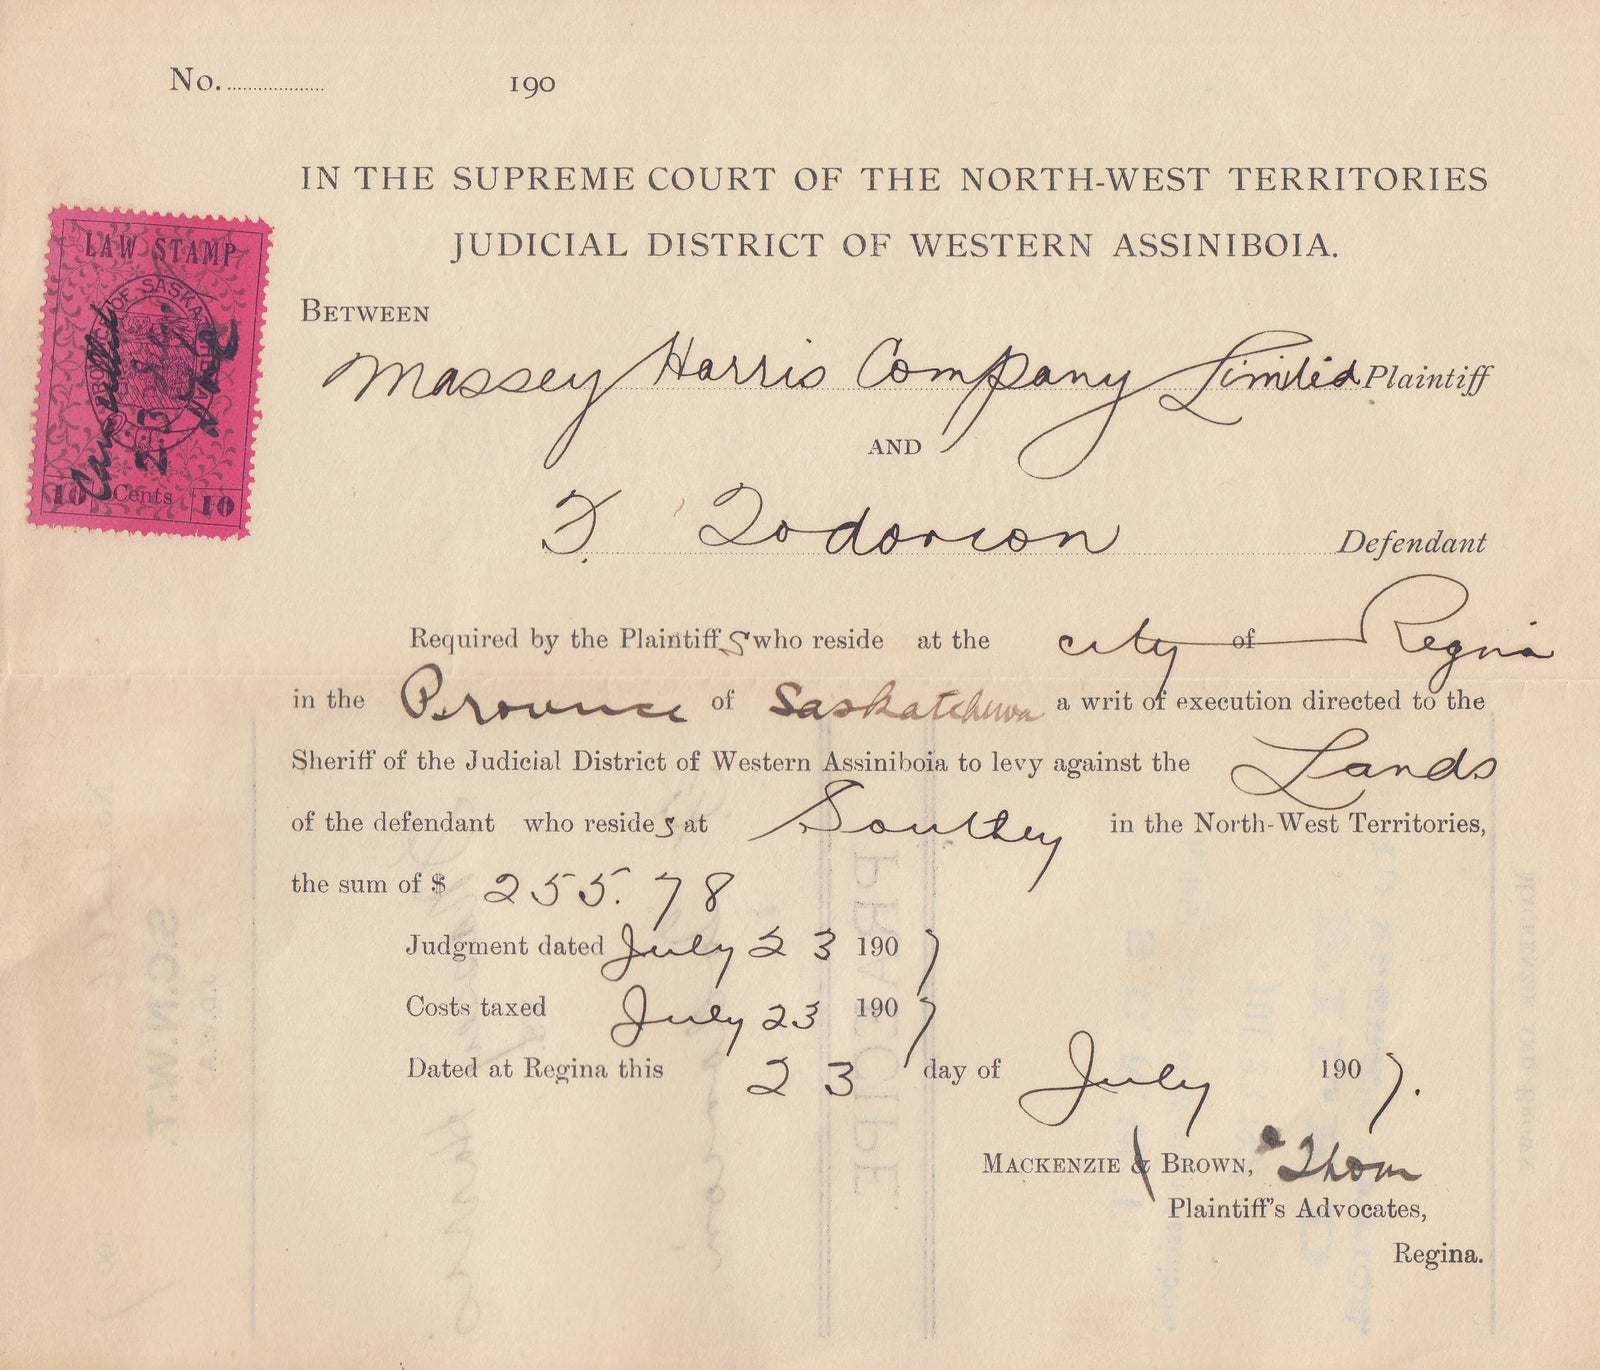 No. 190
IN THE SUPREME COURT OF THE NORTH-WEST TERRITORIES
JUDICIAL DISTRICT OF WESTERN ASSINIBOIA.
LAW STAMP
PROVINCE OF SASKATCHEWAN
Cancelled
10 Cents 10
BETWEEN
Massey Harris Company Limited Plaintiff
AND
T. Todorion Defendant
Required by the Plaintiff s who reside at the city of Regina
in the Province of Saskatchewan a writ of execution directed to the
Sheriff of the Judicial District of Western Assiniboia to levy against the Lands
of the defendant who reside s at Southey in the North-West Territories,
the sum of $ 255.78
Judgment dated July 23 1907
Costs taxed July 23 1907
Dated at Regina this 23 day of July 1907.
MACKENZIE & BROWN, & Thom
Plaintiff's Advocates,
Regina.
PRAECIPE
S.C.N.W.T.
MACKENZIE AND BROWN